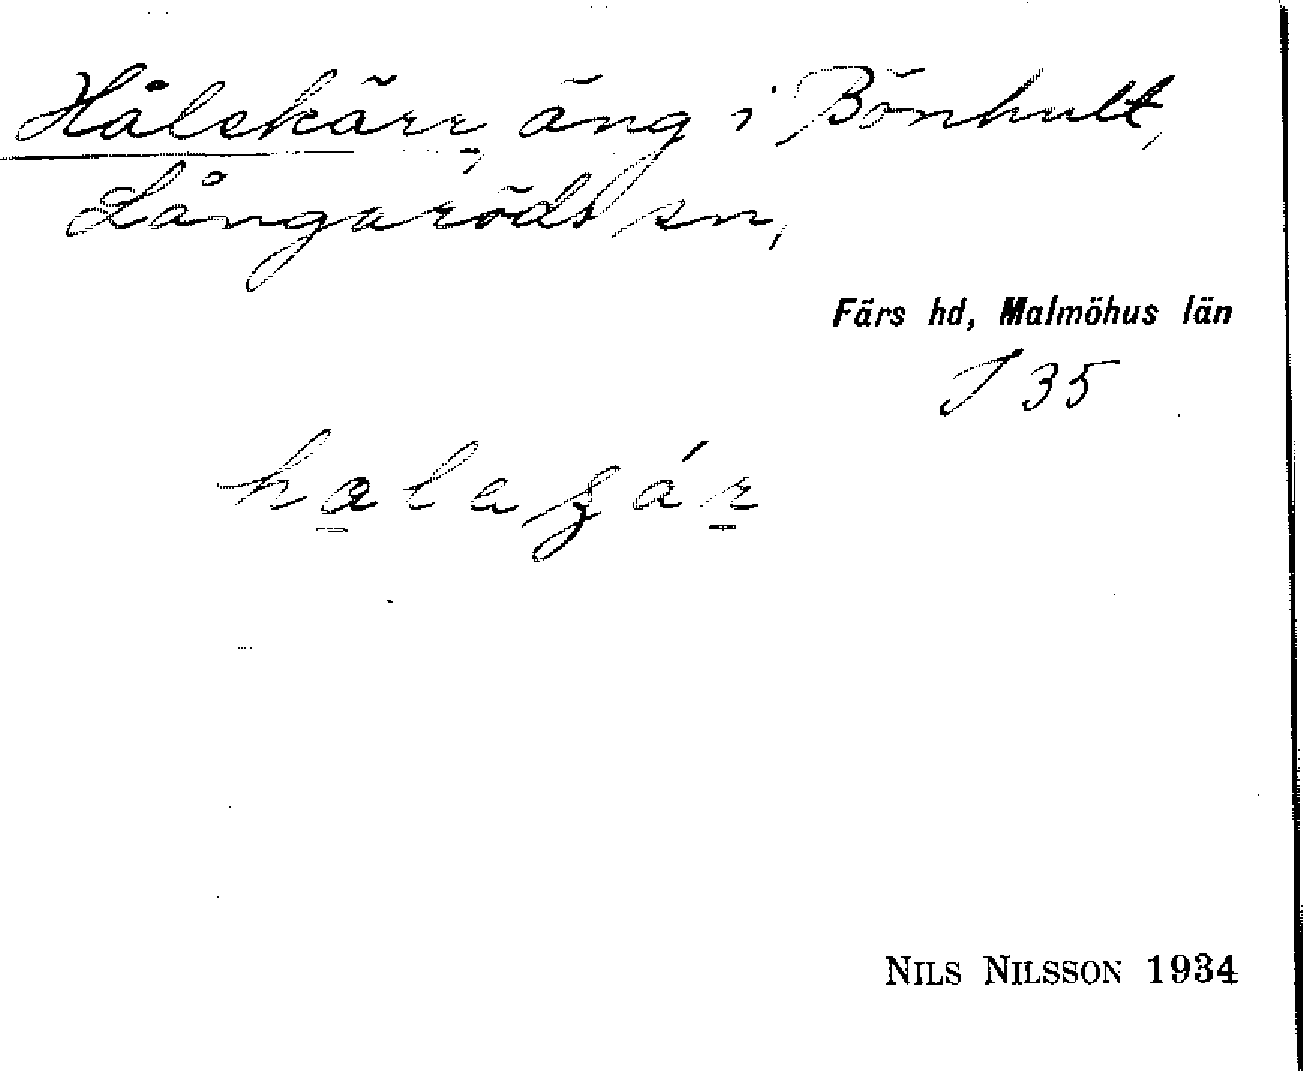 Hålskärr, äng i Bönhult,
Långaröds sn,
Färs hd, Malmöhus län
I 35
NILS NILSSON 1934